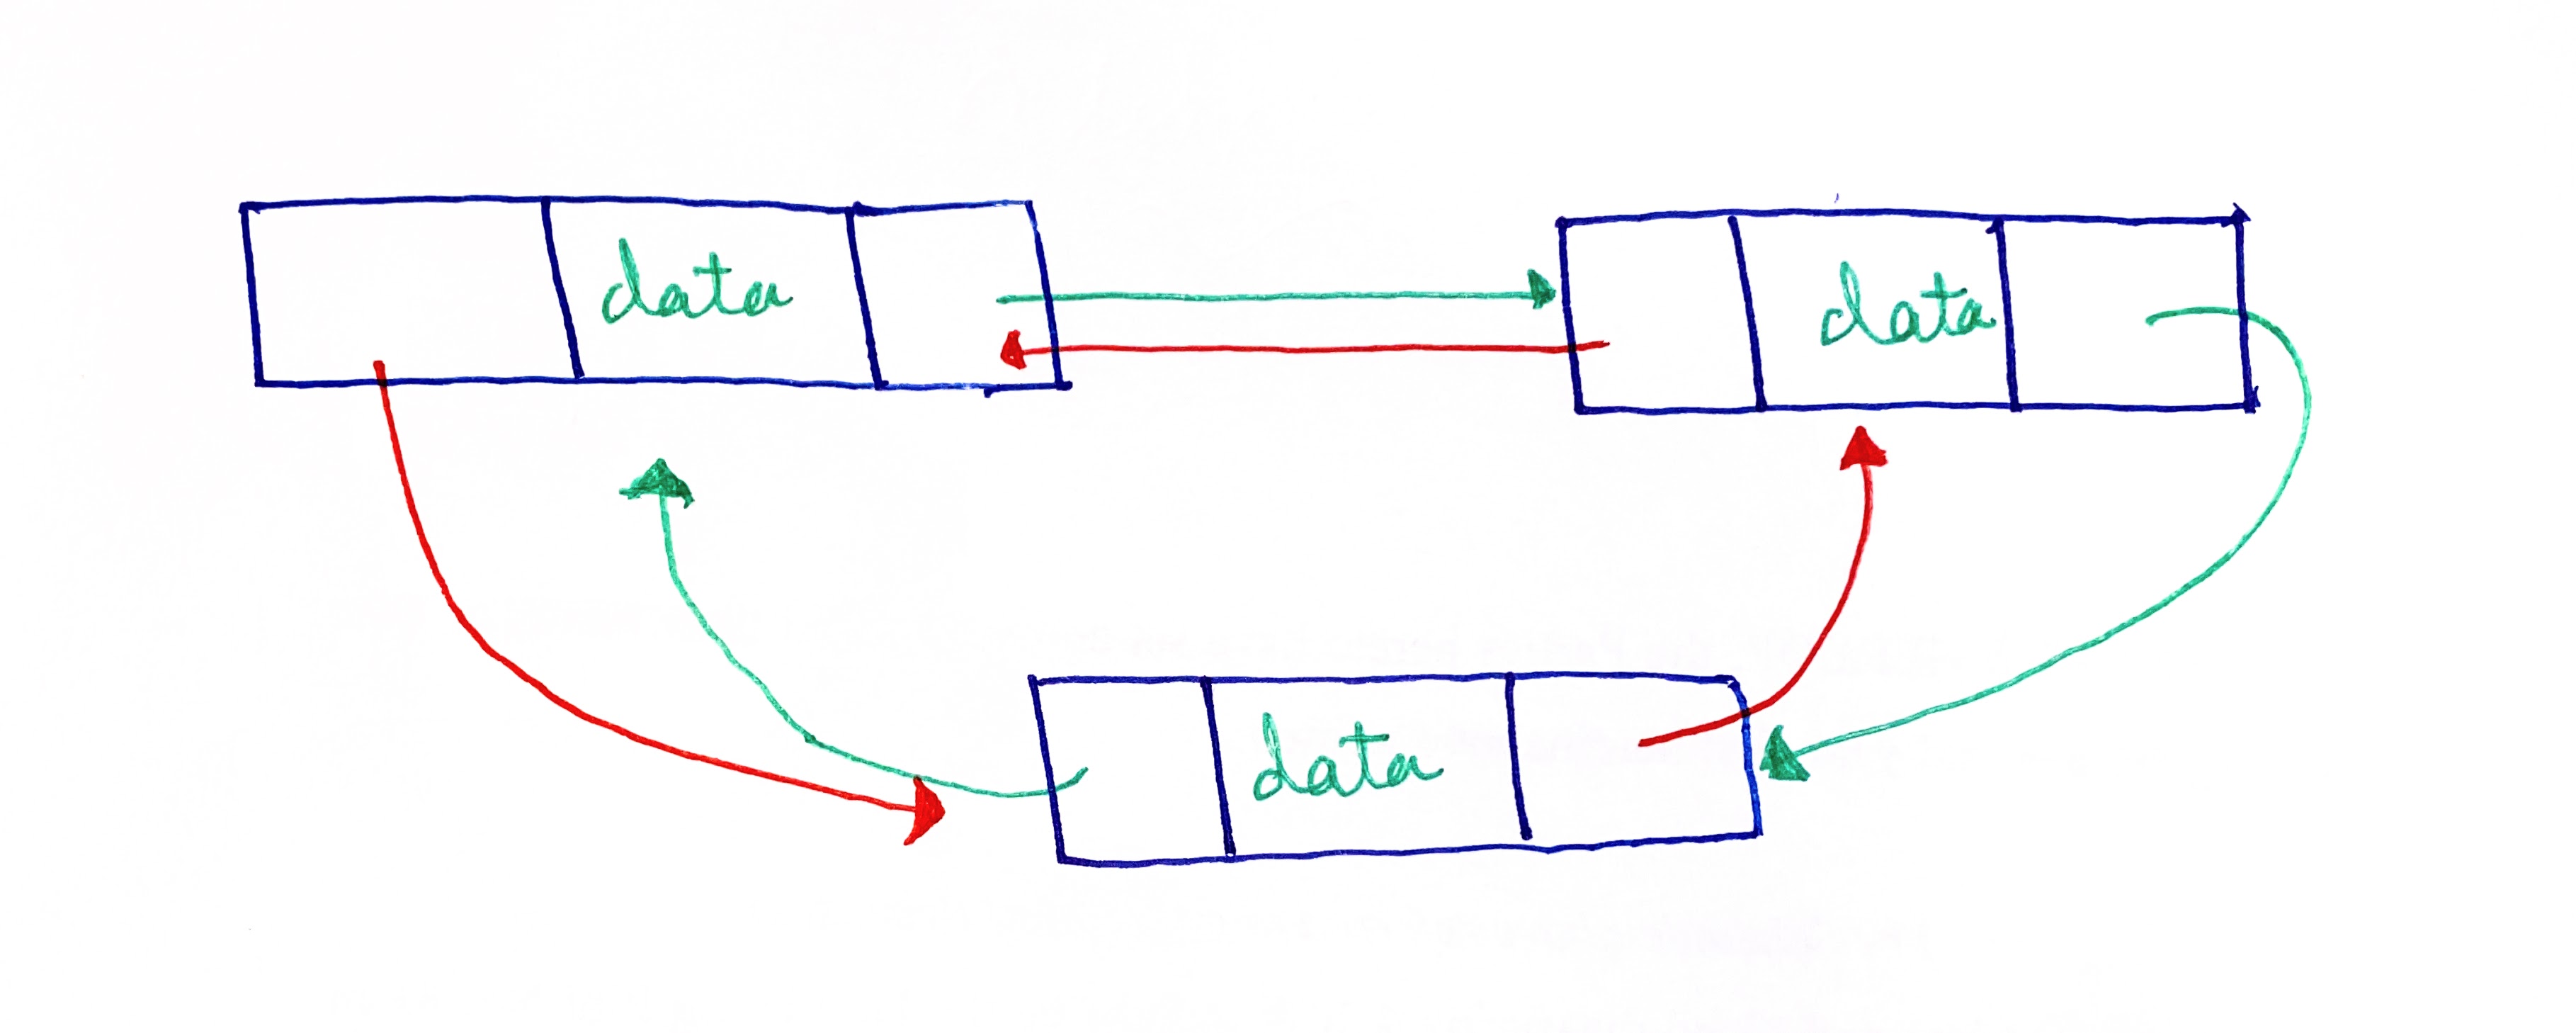 data
data
data